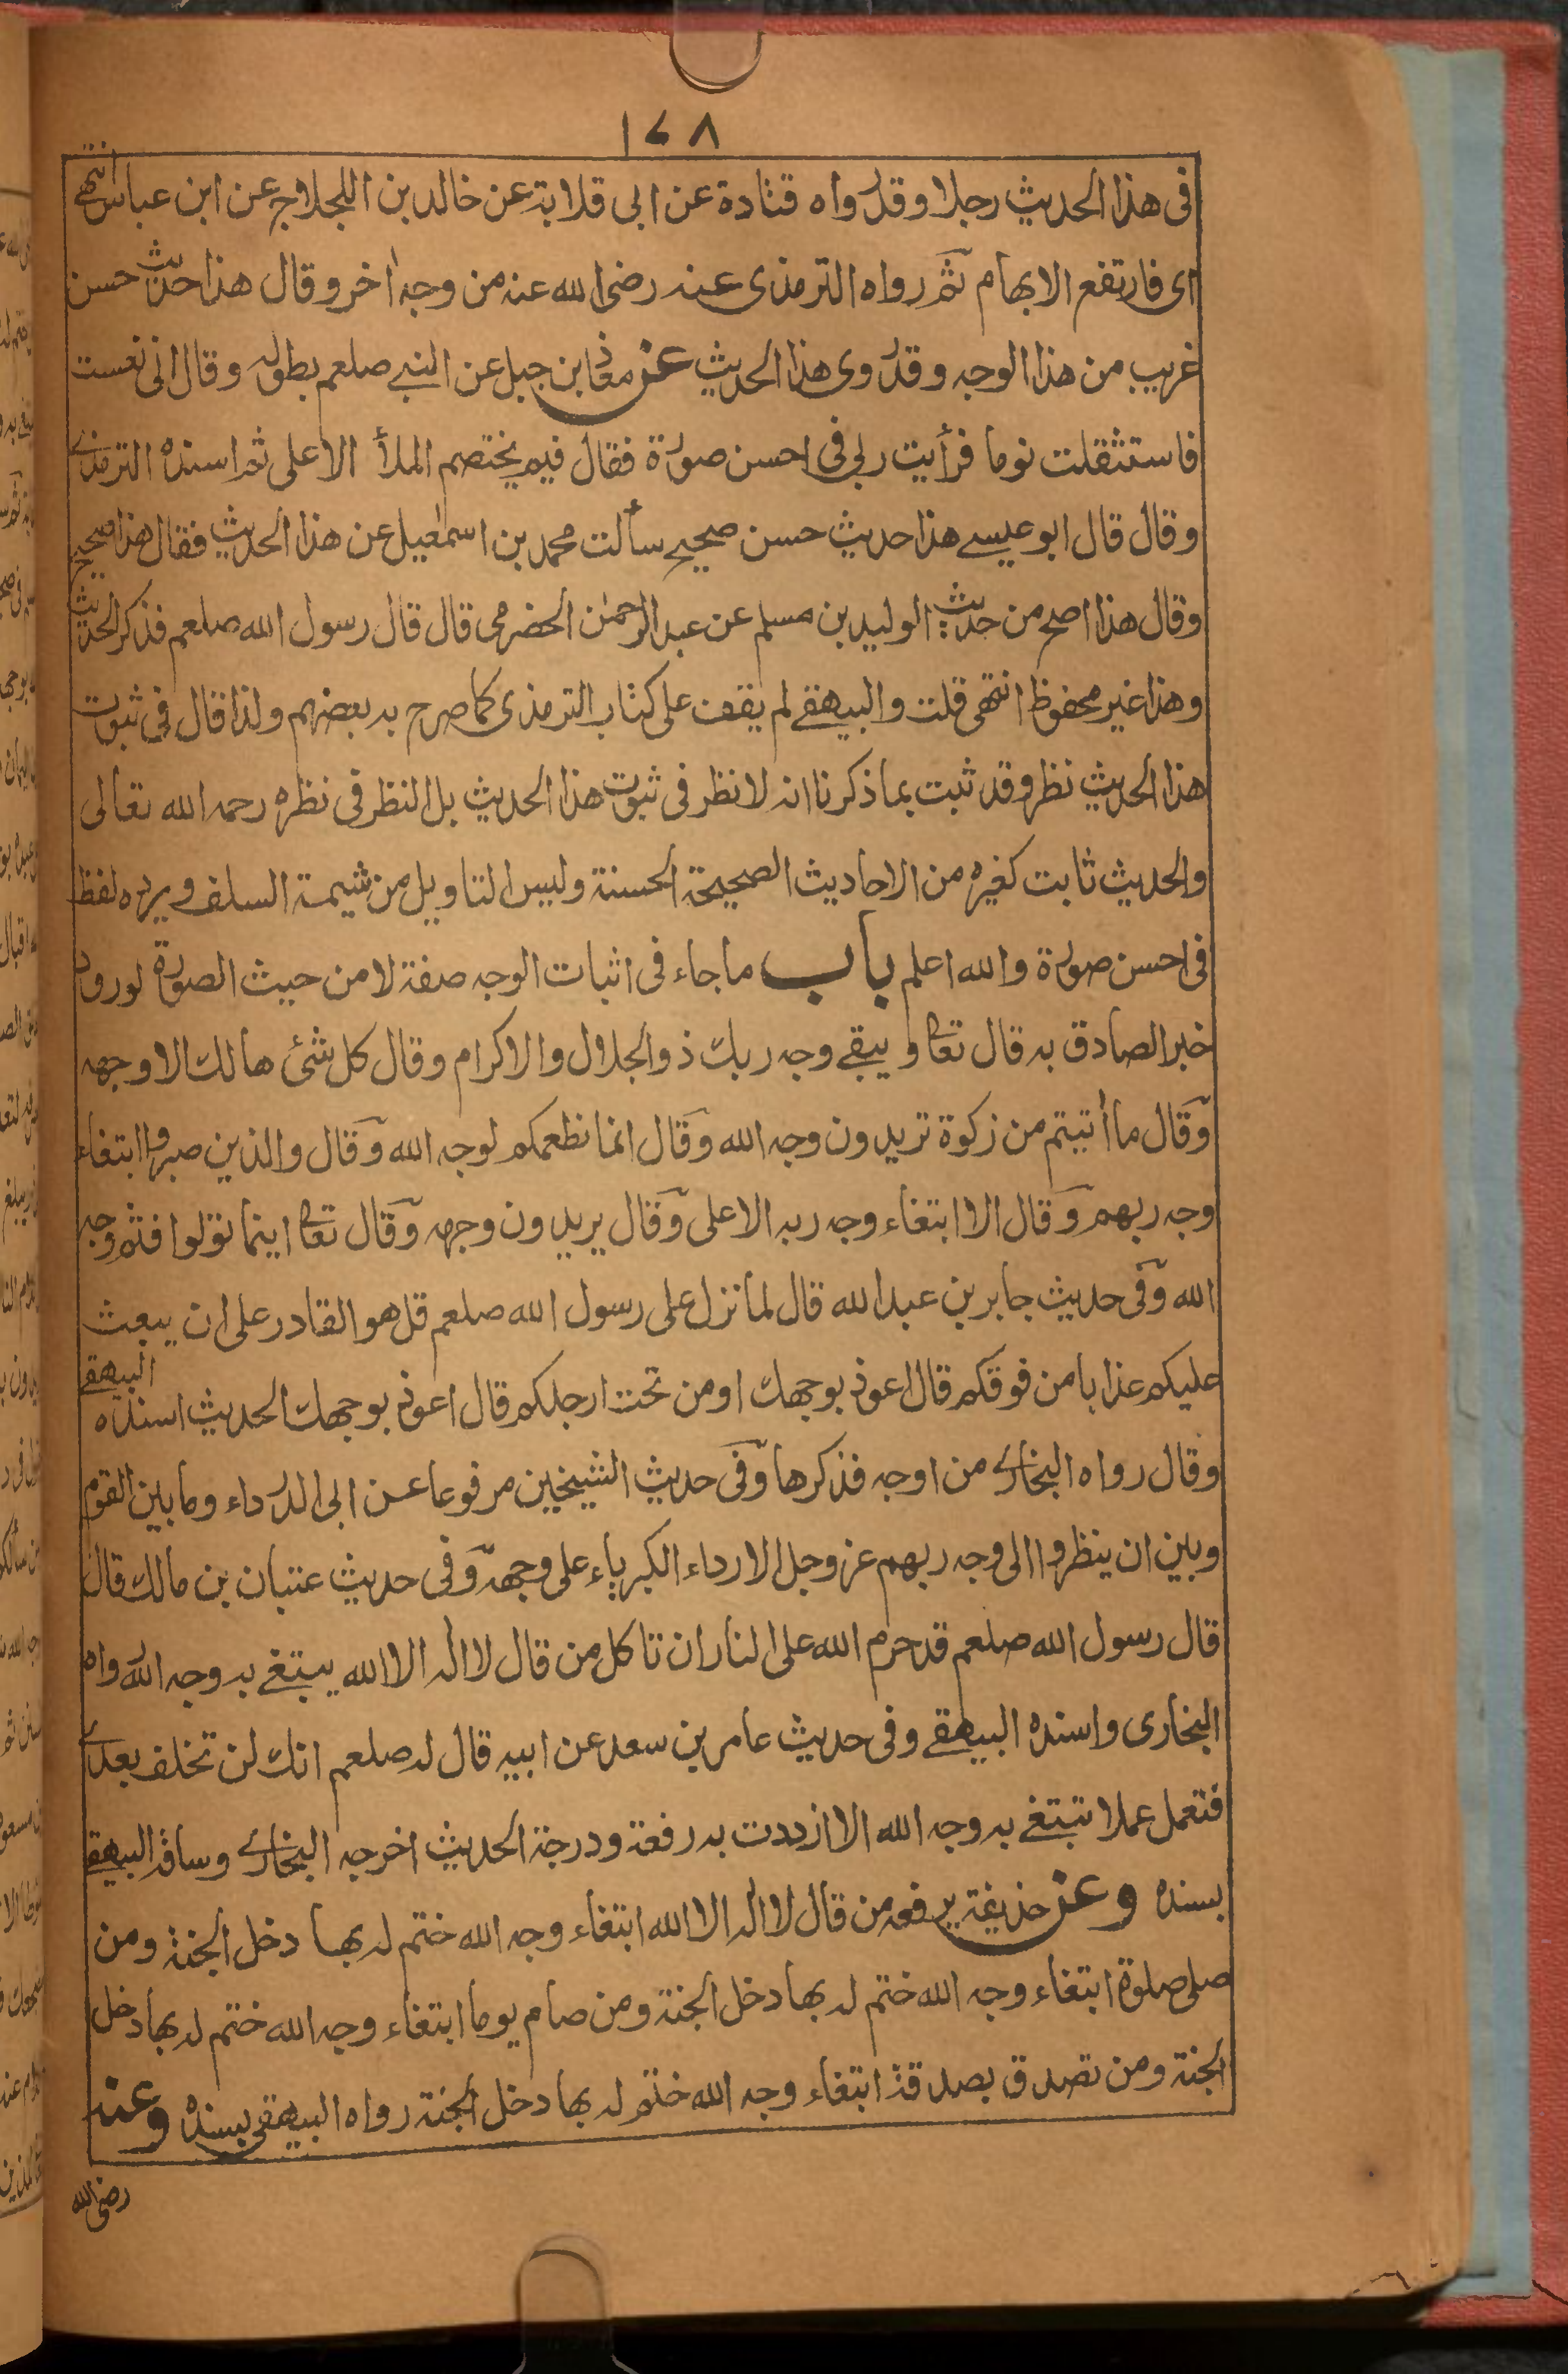 ١٧٨
فى هذا الحديث رجلا وقد رواه قتادة عن ابى قلابة عن خالد بن اللجلاج عن ابن عباس انتهى
اى فارتفع الابهام ثم رواه الترمذى عنه رضى الله عنه من وجه اخر وقال هذا حديث حسن
غريب من هذا الوجه وقد روى هذا الحديث عن معاذ بن جبل عن النبي صلعم بطوله وقال انى نعست
فاستثقلت نوما فرأيت ربى فى احسن صورة فقال فيم يختصم الملأ الاعلى ثم اسنده الترمذى
وقال قال ابو عيسے هذا حديث حسن صحيح سألت محمد بن اسمعيل عن هذا الحديث فقال هذا صحيح
وقال هذا اصح من حديث الوليد بن مسلم عن عبد الرحمن الحضرمى قال قال رسول الله صلعم فذكر الحديث
وهذا غير محفوظ انتهى قلت والبيهقے لم يقف على كتاب الترمذى كما صرح به بعضهم ولذا قال فى ثبوت
هذا الحديث نظر وقد ثبت بما ذكرنا انه لا نظر فى ثبوت هذا الحديث بل النظر فى نظره رحمه الله تعالى
والحديث ثابت كغيره من الاحاديث الصحيحة الحسنة وليس التاويل من شيمة السلف ويرده لفظ
فى احسن صورة والله اعلم باب ما جاء فى اثبات الوجه صفة لا من حيث الصورة لورود
خبر الصادق به قال تعا ويبقے وجه ربك ذو الجلال والاكرام وقال كل شئ هالك الا وجهه
وقال ما أتيتم من زكوة تريدون وجه الله وقال انما نطعمكم لوجه الله وقال والذين صبروا ابتغاء
وجه ربهم وقال الا ابتغاء وجه ربه الاعلى وقال يريدون وجهه وقال تعا اينما تولوا فثم وجه
الله وفى حديث جابر بن عبد الله قال لما نزل على رسول الله صلعم قل هو القادر على ان يبعث
عليكم عذابا من فوقكم قال اعوذ بوجهك او من تحت ارجلكم قال اعوذ بوجهك الحديث اسنده البيهقے
وقال رواه البخارى من اوجه فذكرها وفى حديث الشيخين مرفوعا عن ابى الدرداء وما بين القوم
وبين ان ينظروا الى وجه ربهم عز وجل الا رداء الكبرياء على وجهه وفى حديث عتبان بن مالك قال
قال رسول الله صلعم قد حرم الله على النار ان تاكل من قال لا اله الا الله يبتغے به وجه الله رواه
البخارى واسنده البيهقے وفى حديث عامر بن سعد عن ابيه قال له صلعم انك لن تخلف بعدى
فتعمل عملا تبتغے به وجه الله الا ازددت به رفعة ودرجة الحديث اخرجه البخارى وساقه البيهقے
بسنده وعن حذيفة يرفعه من قال لا اله الا الله ابتغاء وجه الله ختم له بها دخل الجنة ومن
صلى صلوة ابتغاء وجه الله ختم له بها دخل الجنة ومن صام يوما ابتغاء وجه الله ختم له بها دخل
الجنة ومن تصدق بصدقة ابتغاء وجه الله ختم له بها دخل الجنة رواه البيهقى بسنده وعنه
رضى الله